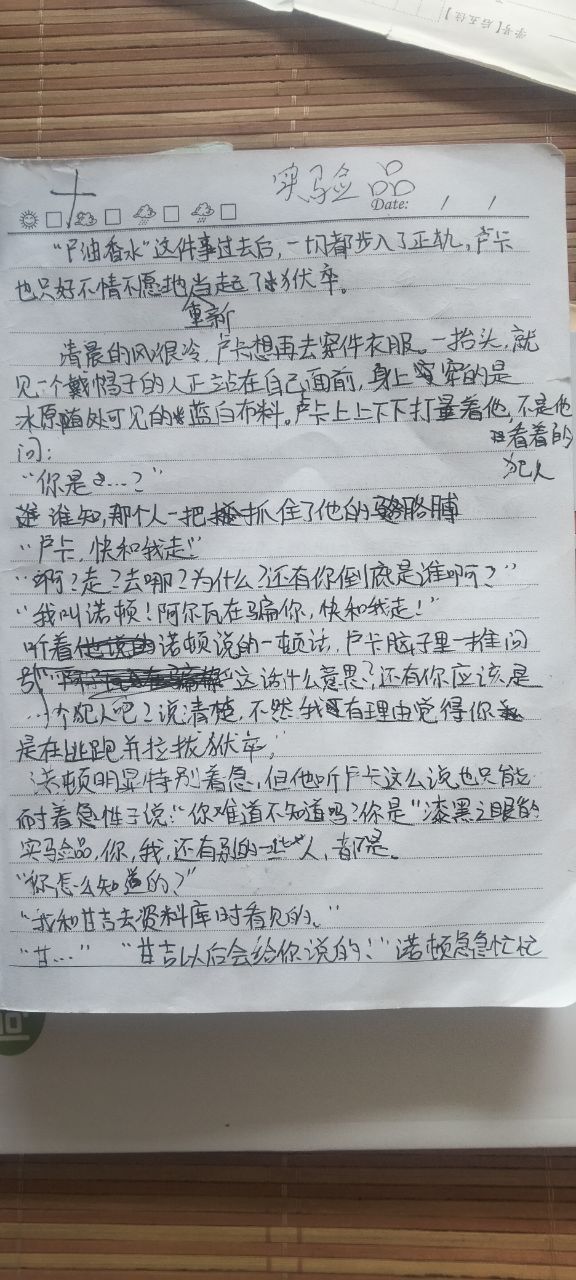 学号【后五位】
十 实验品
Date: / /
“尸油香水”这件事过去后，一切都步入了正轨，卢卡
也只好不情不愿地当起了狱卒。
重新
清晨的风很冷，卢卡想再去穿件衣服。一抬头，就
见一个戴帽子的人正站在自己面前，身上穿的是
冰原随处可见的蓝白布料。卢卡上上下下打量着他，不是他
看着的
犯人
问：
“你是……？”
谁知，那个人一把抓住了他的胳膊
“卢卡，快和我走！”
“啊？走？去哪？为什么？还有你倒底是谁啊？”
“我叫诺顿！阿尔瓦在骗你，快和我走！”
听着诺顿说的一顿话，卢卡脑子里一堆问
号“这话什么意思？还有你应该是
个犯人吧？说清楚，不然我有理由觉得你
是在逃跑并拉拢狱卒，”
诺顿明显特别着急，但他听卢卡这么说也只能
耐着急性子说：“你难道不知道吗？你是“漆黑之眼的
实验品，你，我，还有别的一些人，都是。
“你怎么知道的？”
“我和甘吉去资料库时看见的。”
“甘…” “甘吉以后会给你说的！”诺顿急急忙忙